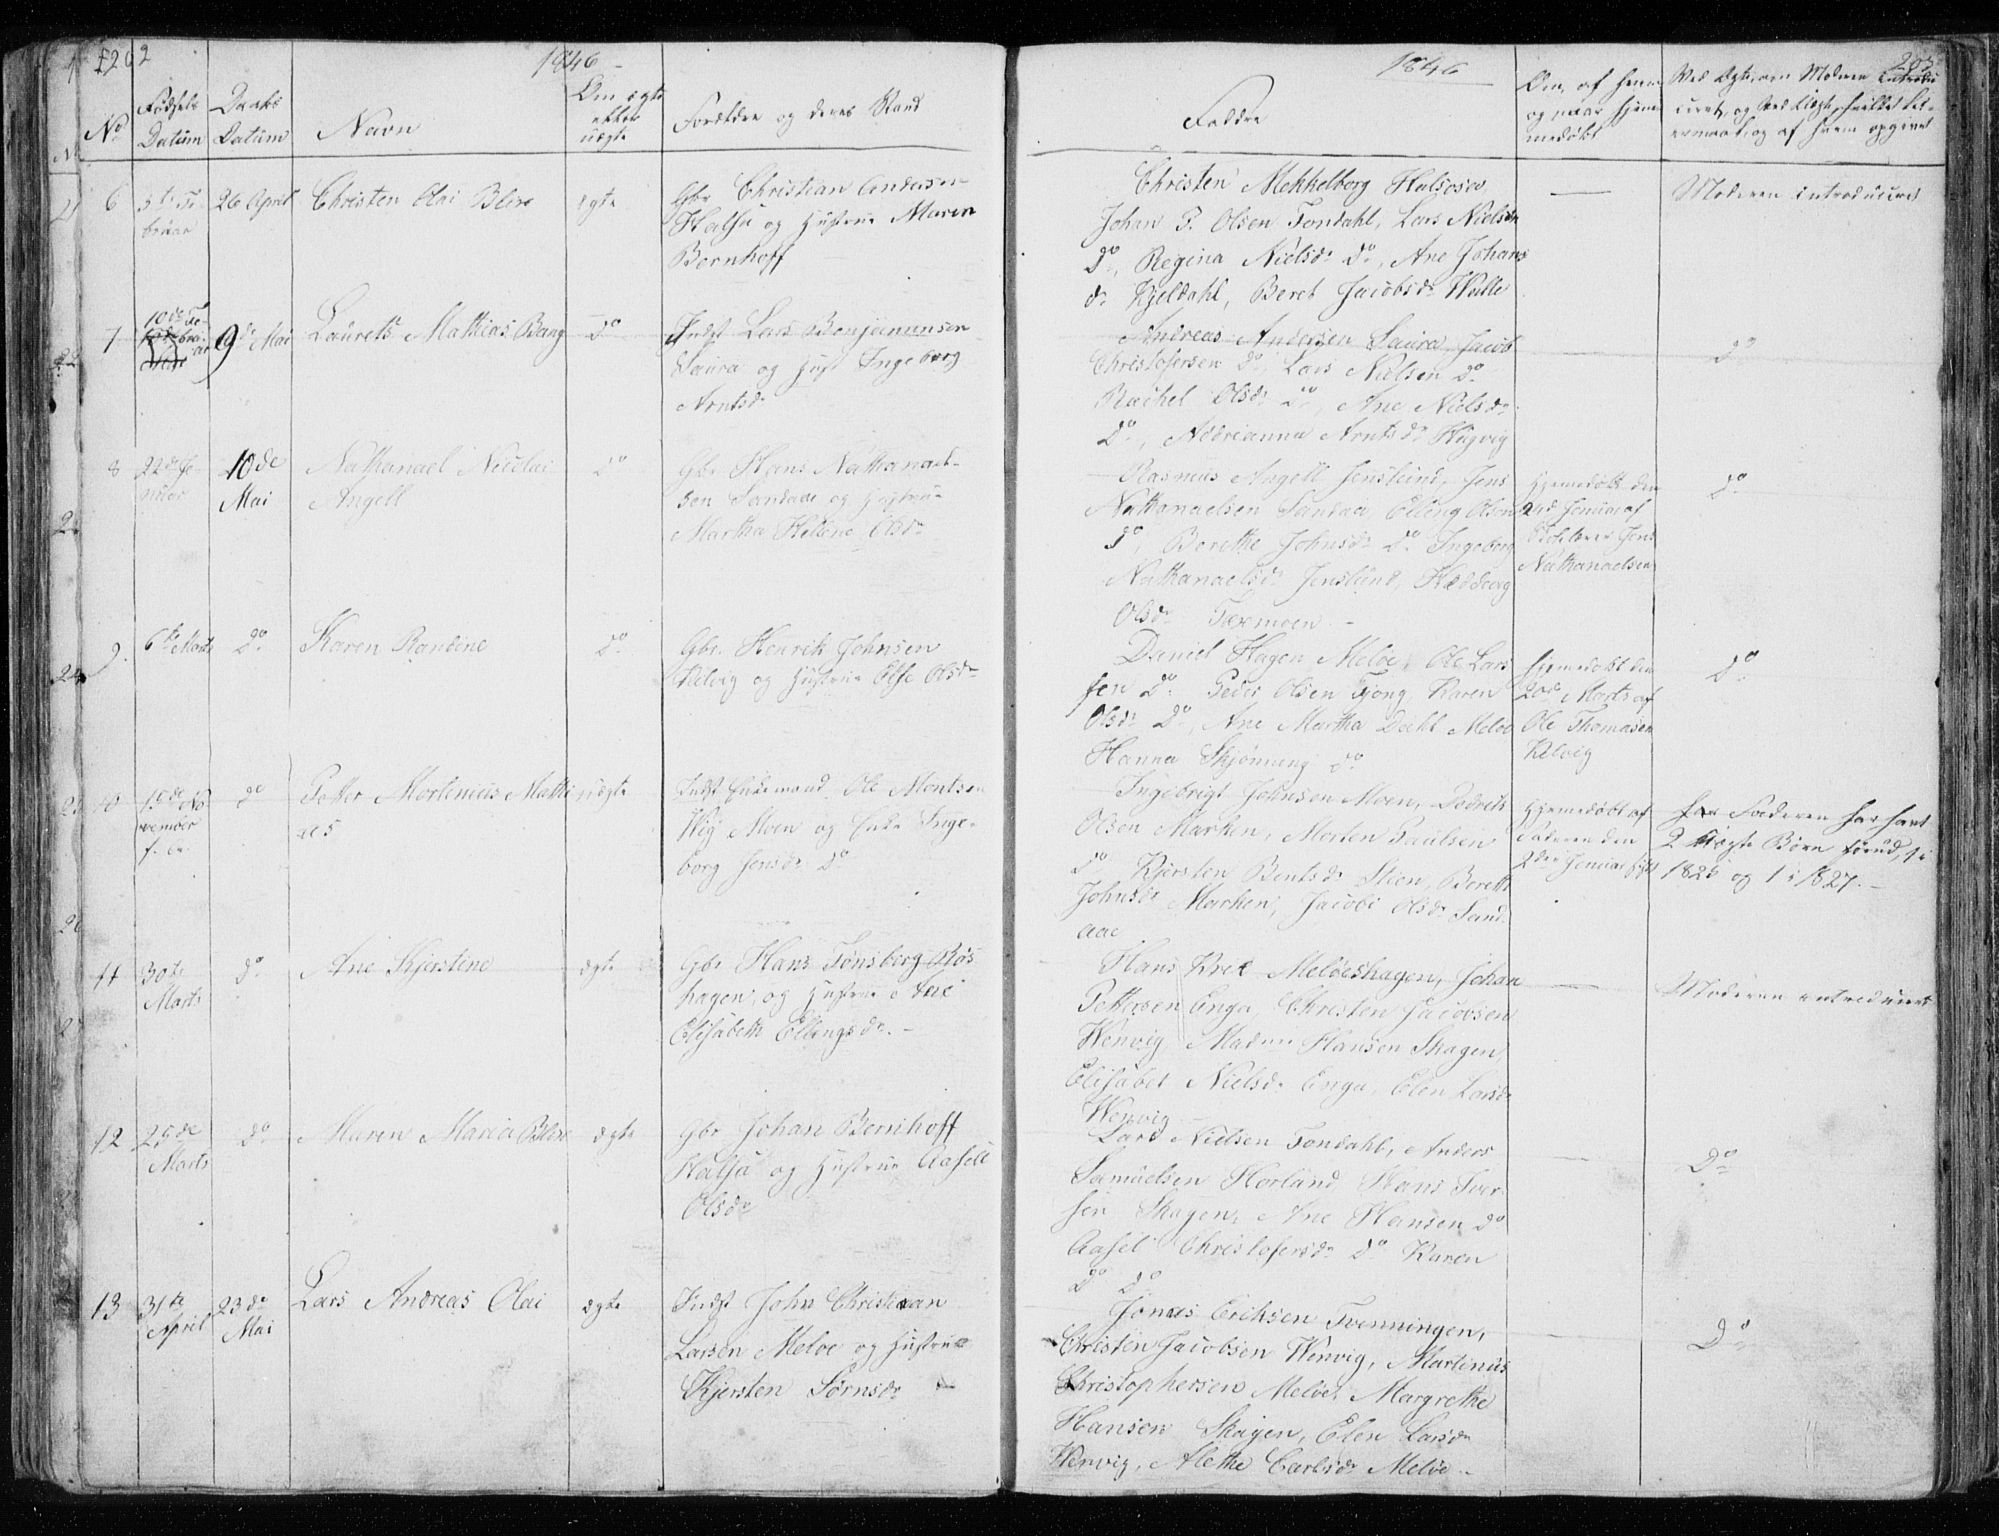 202
1846
No
Fødsels
Datum
Daabs
Datum
Navn
Om ægte
eller
uægte
Forældre og deres Stand
6
26 April
Christen Olai Blix
ægte
Gbr Christian Andersen
Halsa og Hustrue Maren
Bernhoff
7
9de Mai
Laurets Mathias Bang
Do
Indst Lars Benjaminsen
Saura og Hust Ingeborg
Arntsdr
8
22de Ja-
nuar
10de
Mai
Nathanael Nicolai
Angell
Do
Gbr Hans Nathanael-
sen Sandaae og Hustrue
Martha Helene Olsdr
9.
6te Marts
Do
Karen Randine
Do
Gbr. Henrik Johnsen
Kelvig og Hustrue Else Olsdr
10
15de No
vember
f. A.
Do
Petter Mortinus Mathi
as
uægte
Indst Enkemand Ole Montsen
Wig Moen og Enke Inge-
borg Jensdr Do
11
30te
Marts
Do
Ane Kjerstine
ægte
Gbr Hans Tønsberg Røs
hagen, og Hustrue Ane
Elisabeth Ellingsdr. -
12
25de
Marts
Do
Maren Maria Blix
ægte
Gbr Johan Bernhoff
Halsa og Hustrue Aasell
Olsdr
13
31te
April
23de
Mai
Lars Andreas Olai
ægte
Indst John Christian
Larsen Meløe og Hustrue
Kjersten Sørnsdr
1846
203
Faddre
Om, af hvem
og naar hjem-
medøbt
Ved Ægte, om Moderen introdu
ceret, og ved Uægte, hvilket Lei-
ermaal, og af hvem opgivet
Christen Mekkelborg Halsosen
Johan P. Olsen Tondahl, Lars Nielsen
Do, Regina Nielsdr Do, Ane Johans
dr Kjeldahl, Beret Jacobsdr Walle
Moderen introduceret
Andreas Andersen Saura, Jacob
Christofersen Do, Lars Nielsen Do
Rachel Olsdr Do, Ane Nielsdr
Do, Adrianna Arntsdr Hugvig
Do
Rasmus Angell Jenslund, Jens
Nathanaelsen Sandaa Elling Olsen
Do, Berethe Johnsdr Do Ingeborg
Nathanaelsdr Jenslund, Hedevig
Olsdr Termoen -
Hjemmedøbt den
Januar af
Jens
Nathanaelsen
Do
Daniel Hagen Meløe, Ole Lars
sen Do Peder Olsen Tjong, Karen
Olsdr Do, Ane Martha Dahl Meløe
Hanna Skjønning Do
Hjemmedøbt den
20de Marts af
Ole Thomasen
Kelvig
Do
Ingebrigt Johnsen Moen,
Olsen Marken, Morten Paulsen
Do Kjersten Bentsdr Stien, Berette
Johnsdr Marken, Jacobe Olsdr Sand
aae
Hjemmedøbt af
Faderen den
2den Januar
Faderen har havt
2 uægte Børn forud, 1 i
og 1 i 1827. -
Hans Krek Meløeshagen, Johan
Pettersen Enga, Christen Jacobsen
Wenvig, Madme Hansen Skagen,
Elisabet Nielsdr Enga, Elen Larsdr
Wenvig -
Moderen introduceret
Lars Nielsen Tondahl, Anders
Samuelsen Horland, Hans Iver-
sen Skagen, Ane Hansen Do
Aasel Christofersdr Do Karen
Do Do
Do
Jonas Eriksen Tvenningen,
Christen Jacobsen Wenvig, Martinus
Christophersen Meløe, Margrethe
Hansen Skagen, Elen Larsdr
Wenvig, Alethe Carlsdr Meløe -
Do